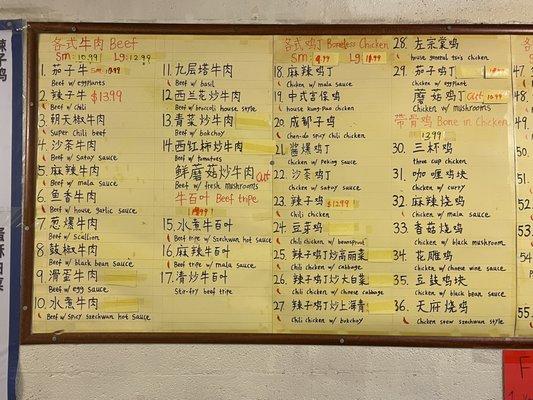 辣子鸡
各式牛肉 Beef
Sm: 10.99 Lg: 12.99
1. 茄子牛 Sm
Beef w/ eggplants
2. 辣子牛 $13.99
Beef w/ chili
3. 朝天椒牛肉
Super chili beef
4. 沙茶牛肉
Beef w/ Satay sauce
5. 麻辣牛肉
Beef w/ mala sauce
6. 鱼香牛肉
Beef w/ house garlic sauce
7. 葱爆牛肉
Beef w/ Scallion
8. 鼓椒牛肉
Beef w/ black bean sauce
9. 滑蛋牛肉
Beef w/ egg sauce
10. 水煮牛肉
Beef w/ Spicy szechwan hot Sauce
11. 九层塔牛肉
Beef w/ basil
12. 西兰花炒牛肉
Beef w/ broccoli house style
13. 青菜炒牛肉
Beef w/ bokchoy
14. 西红柿炒牛肉
Beef w/ tomatoes
鲜蘑菇炒牛肉 out
Beef w/ fresh mushrooms
牛百叶 Beef tripe
15. 水煮牛百叶
Beef tripe w/ Szechwan hot sauce
16. 麻辣牛百叶
Beef tripe w/ mala sauce
17. 清炒牛百叶
Stir-fry beef tripe
各式鸡丁 Boneless Chicken
Sm: Lg:
18. 麻辣鸡丁
Chicken w/ mala sauce
19. 中式宫保鸡
house kung Pao chicken
20. 成都子鸡
Chen-do spicy chili chicken
21. 酱爆鸡丁
Chicken w/ Peking sauce
22. 沙茶鸡丁
Chicken w/ satay sauce
23. 辣子鸡 $12.99
Chili chicken
24. 豆芽鸡
Chili chicken w/ beansprout
25. 辣子鸡丁炒高丽菜
Chili chicken w/ cabbage
26. 辣子鸡丁炒大白菜
Chili chicken w/ chinese cabbage
27. 辣子鸡丁炒上海青
Chili chicken w/ bokchoy
28. 左宗棠鸡
house general tso's chicken
29. 茄子鸡丁
Chicken w/ eggplant
蘑菇鸡丁 out
Chicken w/ mushrooms
带骨鸡 Bone in Chicken
13.99
30. 三杯鸡
three cup chicken
31. 咖喱鸡块
Chicken w/ curry
32. 麻辣烧鸡
Chicken w/ mala sauce
33. 香菇烧鸡
Chicken w/ black mushroom
34. 花雕鸡
Chicken w/ chinese wine sauce
35. 豆鼓鸡块
Chicken w/ black bean sauce
36. 天府烧鸡
Chicken stew szechwan style
47.
48.
49.
50.
51.
52.
53.
54
55
F